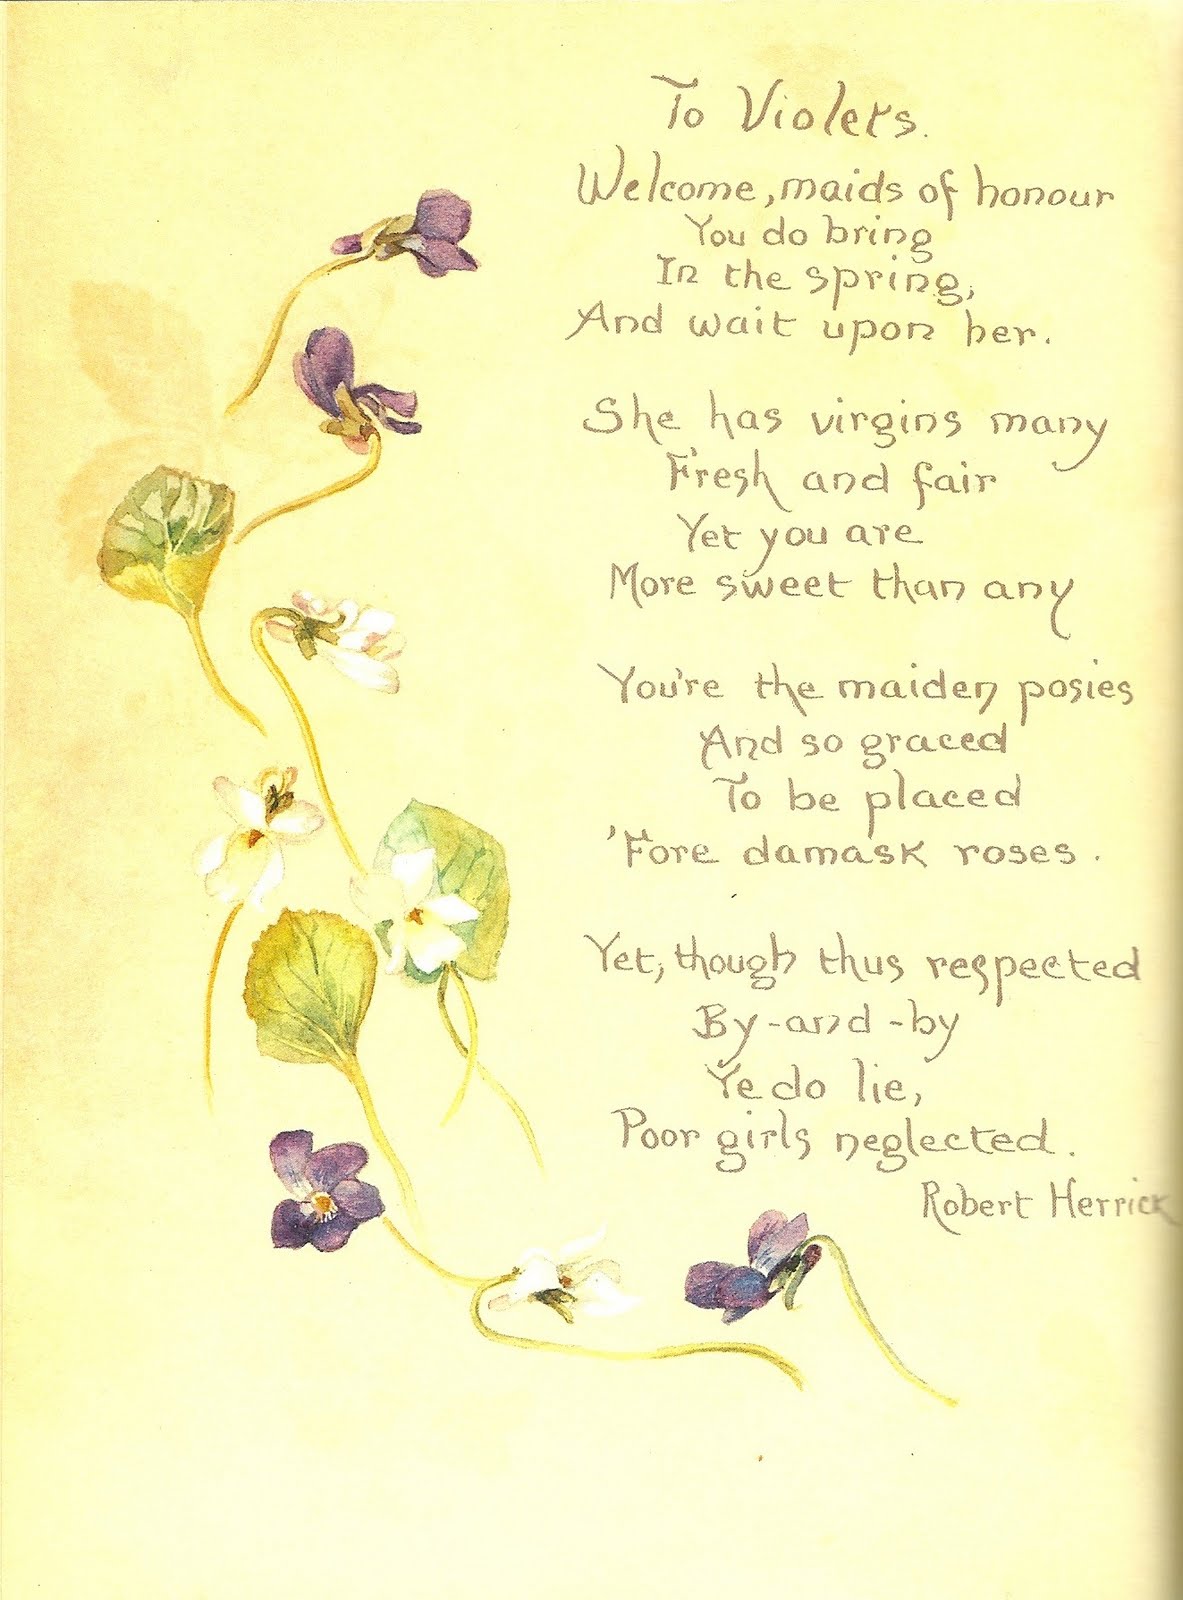 To Violets.
Welcome, maids of honour
You do bring
In the spring,
And wait upon her.
She has virgins many
Fresh and fair
Yet you are
More sweet than any
You're the maiden posies
And so graced
To be placed
'Fore damask roses.
Yet, though thus respected
By-and-by
Ye do lie,
Poor girls neglected.
Robert Herrick